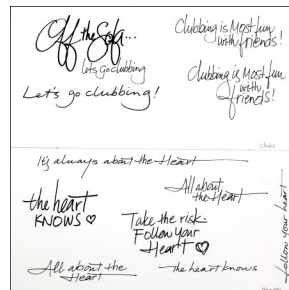 Off the Sofa...
Let's Go clubbing
Let's go clubbing!
Clubbing is Most fun
with friends!
Clubbing is Most fun
with
friends!
clubs
It's always about the Heart
All about
the Heart
the heart
KNOWS ♡
Take the risk.
Follow Your
Heart ♡
All about the
Heart
the heart knows
follow your heart